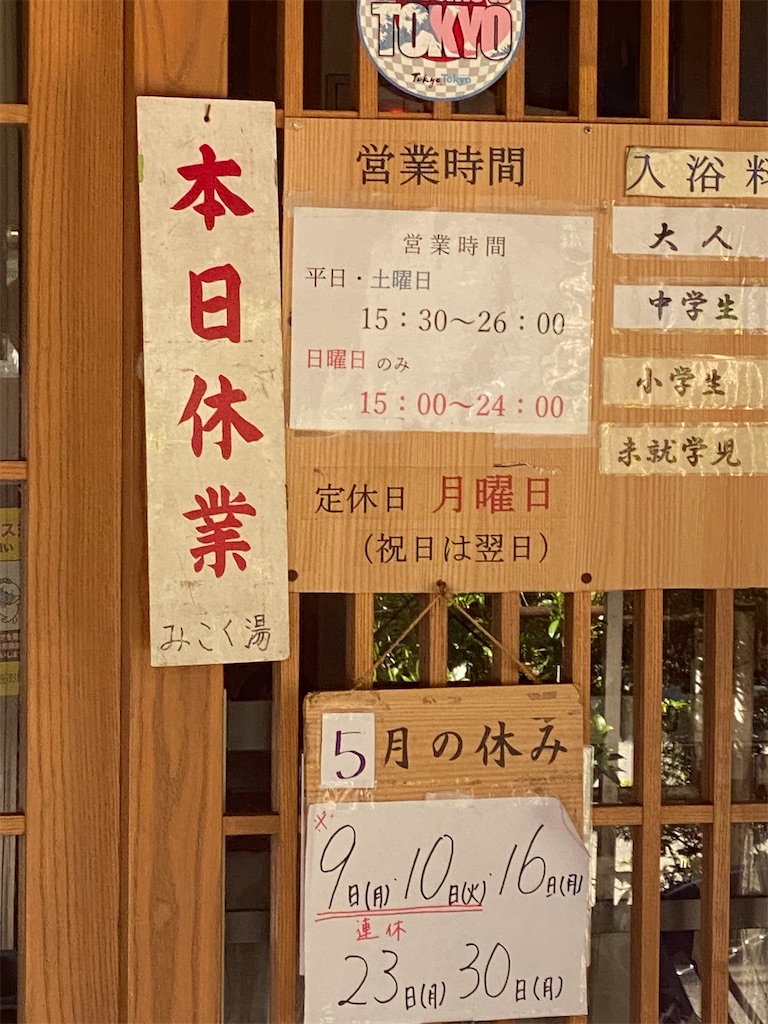 TOKYO
TokyoTokyo
本日休業
みこく湯
営業時間
営業時間
平日・土曜日
15:30〜26:00
日曜日 のみ
15:00〜24:00
定休日 月曜日
(祝日は翌日)
入浴料
大人
中学生
小学生
未就学児
5月の休み
※
9日(月)・10日(火)・16日(月)
連休
23日(月) 30日(月)